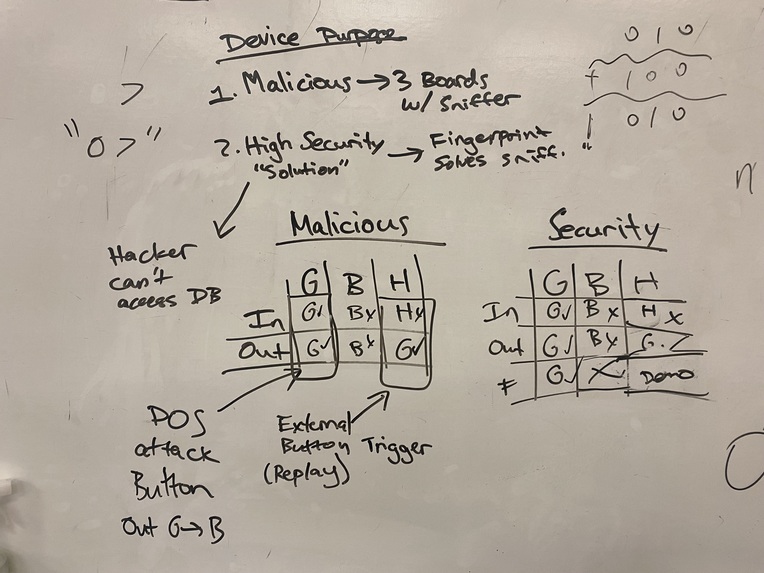 Device Purpose
1. Malicious → 3 Boards
w/ Sniffer
2. High Security → Fingerprint
"Solution" Solves sniff.
>
"0>"
0 1 0
+ 1 0 0
1 0 1 0
Hacker
can't
access DB
Malicious
G B H
In G✓ Bx Hx
Out G✓ Bx G✓
DOS
attack
Button
Out G→B
External
Button Trigger
(Replay)
Security
G B H
In G✓ Bx Hx
Out G✓ Bx G.
F G✓ X Demo
n